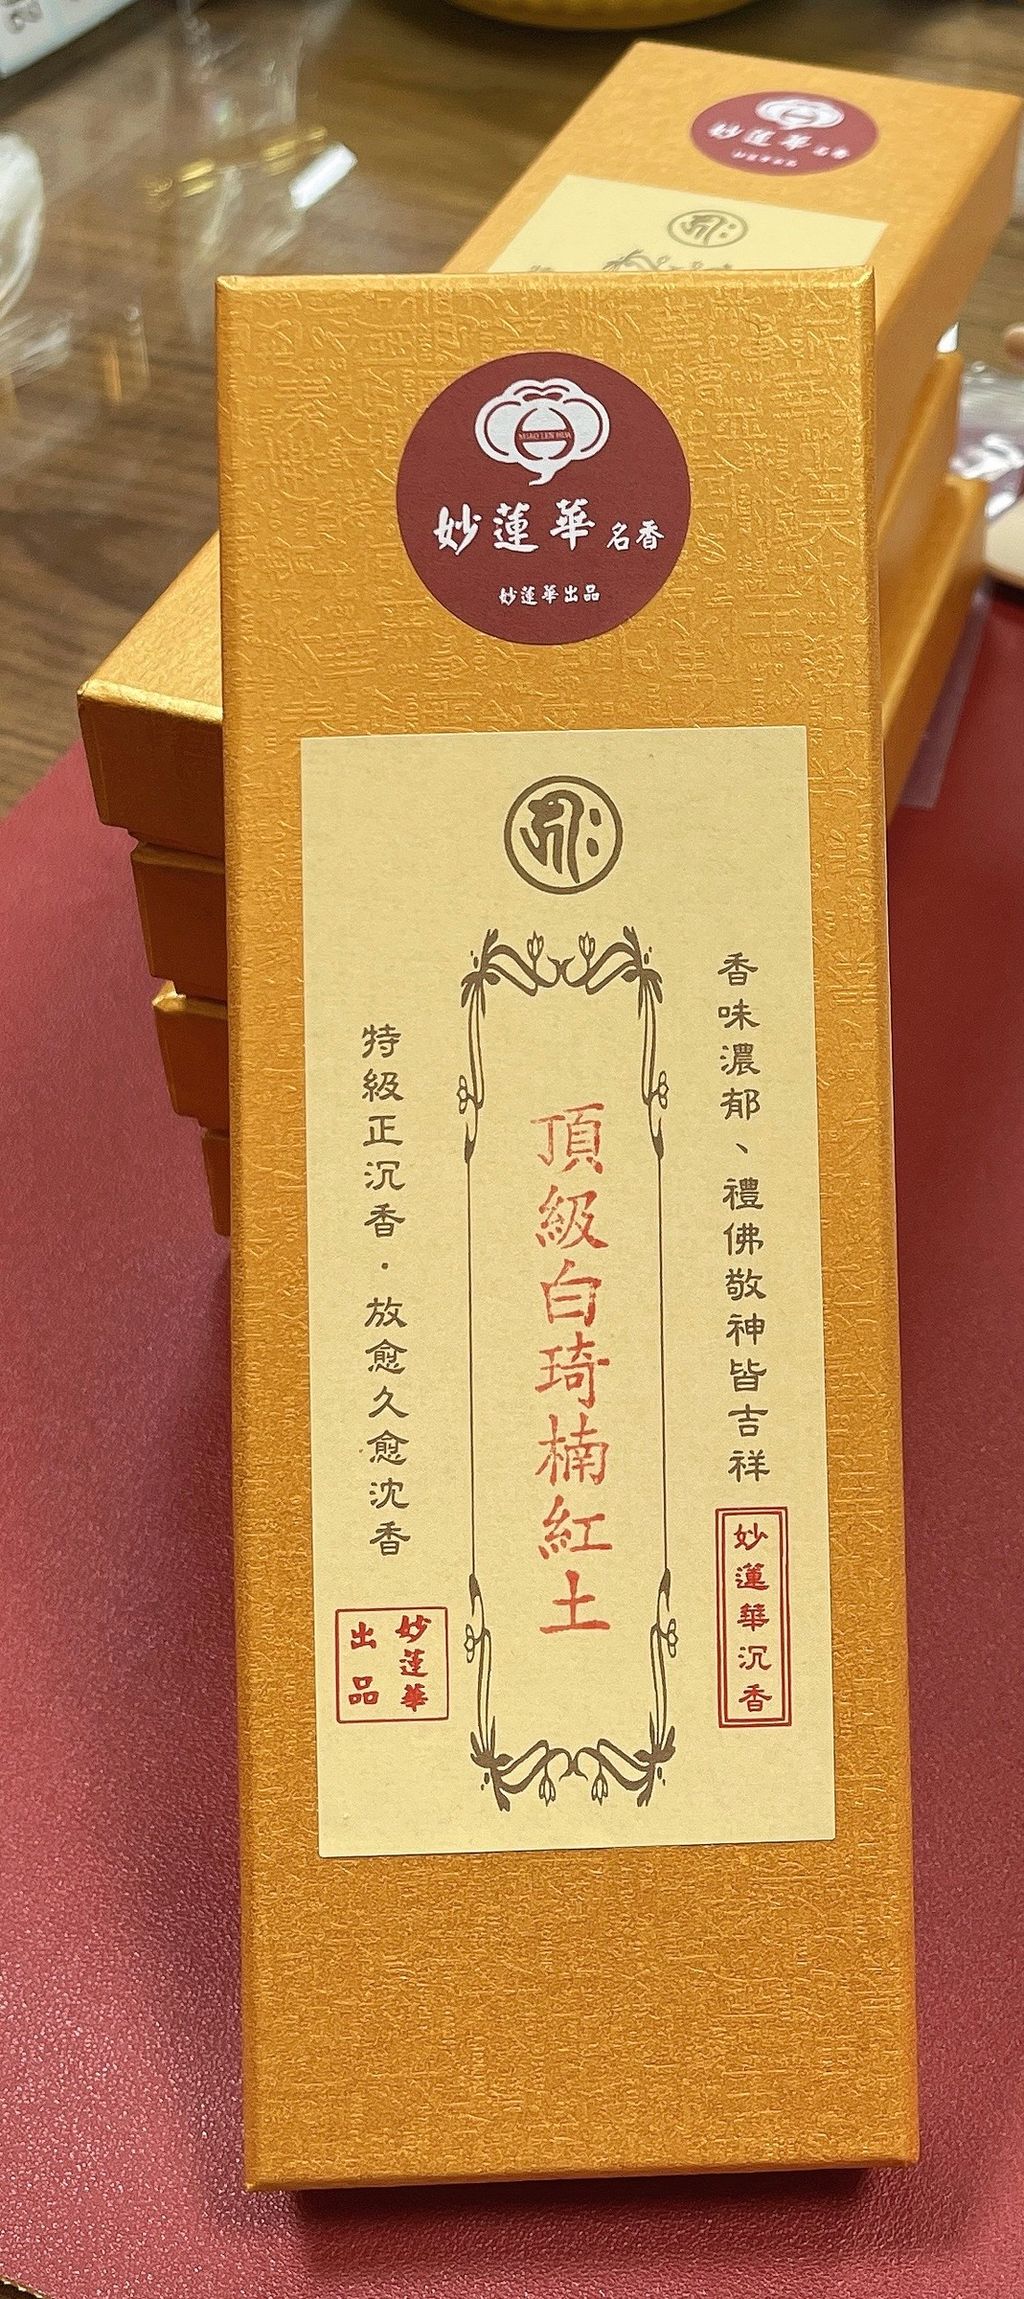 MIAO LEN HUA
妙蓮華名香
妙蓮華出品
香味濃郁、禮佛敬神皆吉祥
妙蓮華沉香
頂級白琦楠紅土
特級正沉香·放愈久愈沈香
妙蓮華
出品
妙蓮華名香